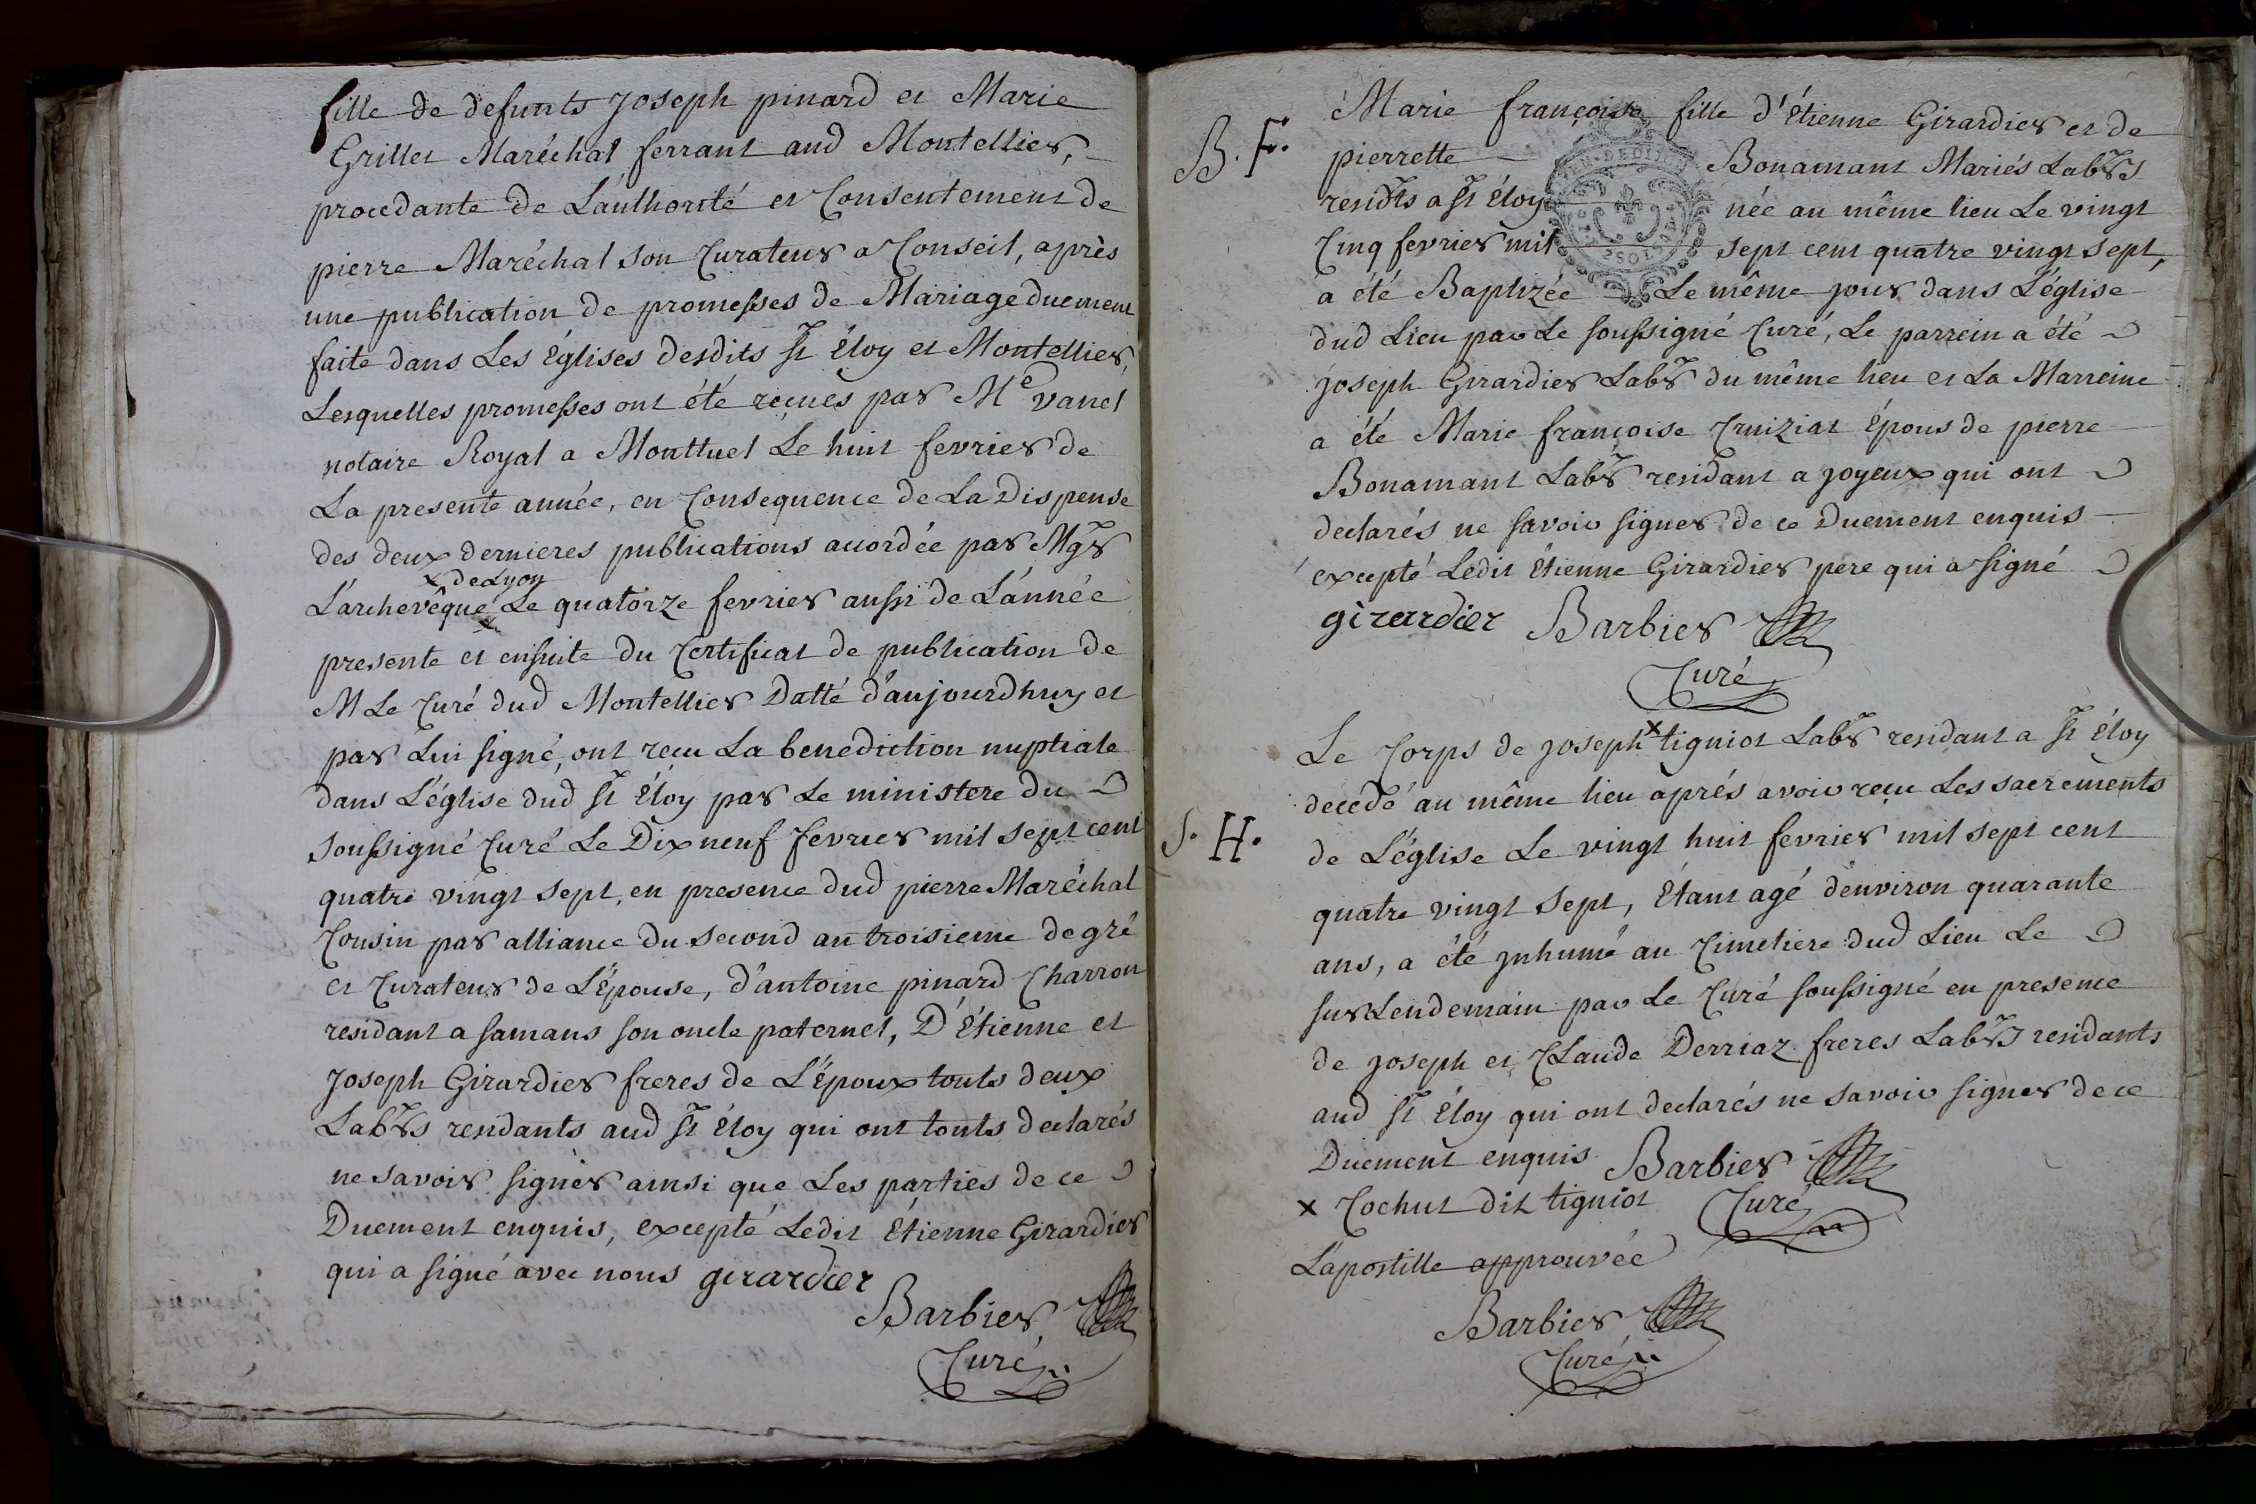 fille de defunts Joseph pinard et Marie
Grillet Maréchal ferrant aud Montellier,
procedante de L'authorité et Consentement de
pierre Maréchal son Curateur a Conseil, après
une publication de promesses de Mariage duement
faite dans Les Églises desdits St Éloy et Montellier,
Lesquelles promesses ont été reçues par Me vanel
notaire Royal a Montluel Le huit fevrier de
La presente année, en Consequence de La Dispense
des deux dernieres publications accordée par Mgr
x de Lyon
L'archevêque x Le quatorze fevrier aussi de L'année
presente et ensuite du Certificat de publication de
M Le Curé dud Montellier Datté d'aujourdhuy et
par Lui signé, ont reçu La benediction nuptiale
dans L'église dud St Éloy par Le ministere du
soussigné Curé Le Dix neuf fevrier mil sept cent
quatre vingt sept, en presence dud pierre Maréchal
Cousin par alliance du second au troisieme degré
et Curateur de L'Épouse, d'antoine pinard Charron
residant a samans son oncle paternel, D'Étienne et
Joseph Girardier freres de L'Époux touts deux
Labrs residants aud St Éloy qui ont touts declarés
ne savoir signer ainsi que Les parties de ce
Duement enquis, excepté Ledit Étienne Girardier
qui a signé avec nous girardier
Barbier
Curé
B. F.
Marie françoise fille d'Étienne Girardier et de
pierrette Bonamant Mariés Labrs
residts a St Éloy née au même lieu Le vingt
Cinq fevrier mil sept cent quatre vingt sept,
a été Baptizée Le même jour dans L'église
dud Lieu par Le soussigné Curé, Le parrein a été
joseph Girardier Labr du même lieu et La Marreine
a été Marie françoise Cruiziat Épous de pierre
Bonamant Labr residant a joyeux qui ont
declarés ne savoir signer de ce Duement enquis
excepté Ledit Étienne Girardier pere qui a signé
girardier Barbier
Curé
S. H.
Le Corps de joseph x tigniot Labr residant a St Éloy
decedé au même lieu après avoir reçu Les sacrements
de L'église Le vingt huit fevrier mil sept cent
quatre vingt sept, Étant agé d'environ quarante
ans, a été jnhumé au Cimetiere dud Lieu Le
surlendemain par Le Curé soussigné en presence
de joseph et CLaude Derriaz freres Labrs residants
aud St Éloy qui ont declarés ne savoir signer de ce
Duement enquis. Barbier
x Cochut dit tigniot Curé
L'apostille approuvée
Barbier
Curé